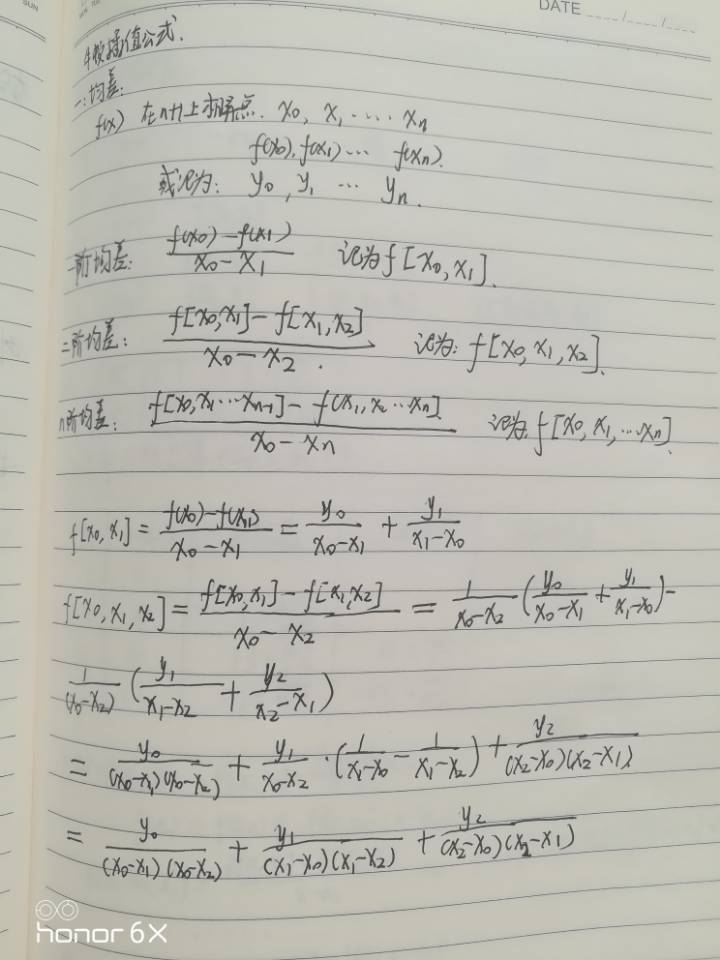 SUN
DATE
牛顿插值公式.
一:均差:
f(x) 在n+1上求解点. x0, x1 ···· xn
f(x0), f(x1) ··· f(xn).
或记为: y0, y1 ··· yn.
一阶均差: (f(x0) - f(x1))/(x0 - x1) 记为f[x0, x1].
二阶均差: (f[x0, x1] - f[x1, x2])/(x0 - x2). 记为: f[x0, x1, x2].
n阶均差: (f[x0, x1 ··· xn-1] - f(x1, x2 ··· xn])/(x0 - xn) 记为: f[x0, x1, ··· xn].
f[x0, x1] = (f(x0) - f(x1))/(x0 - x1) = y0/(x0 - x1) + y1/(x1 - x0)
f[x0, x1, x2] = (f[x0, x1] - f[x1, x2])/(x0 - x2) = 1/(x0 - x2) (y0/(x0 - x1) + y1/(x1 - x0)) -
1/(x0 - x2) (y1/(x1 - x2) + y2/(x2 - x1))
= y0/((x0 - x1)(x0 - x2)) + y1/(x0 - x2) · (1/(x1 - x0) - 1/(x1 - x2)) + y2/((x2 - x0)(x2 - x1))
= y0/((x0 - x1)(x0 - x2)) + y1/((x1 - x0)(x1 - x2)) + y2/((x2 - x0)(x2 - x1))
honor 6X